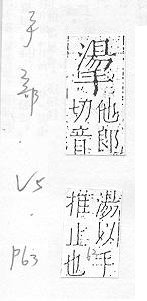 手部 . V5 . P63
他郎
切音
湯以手
推止也